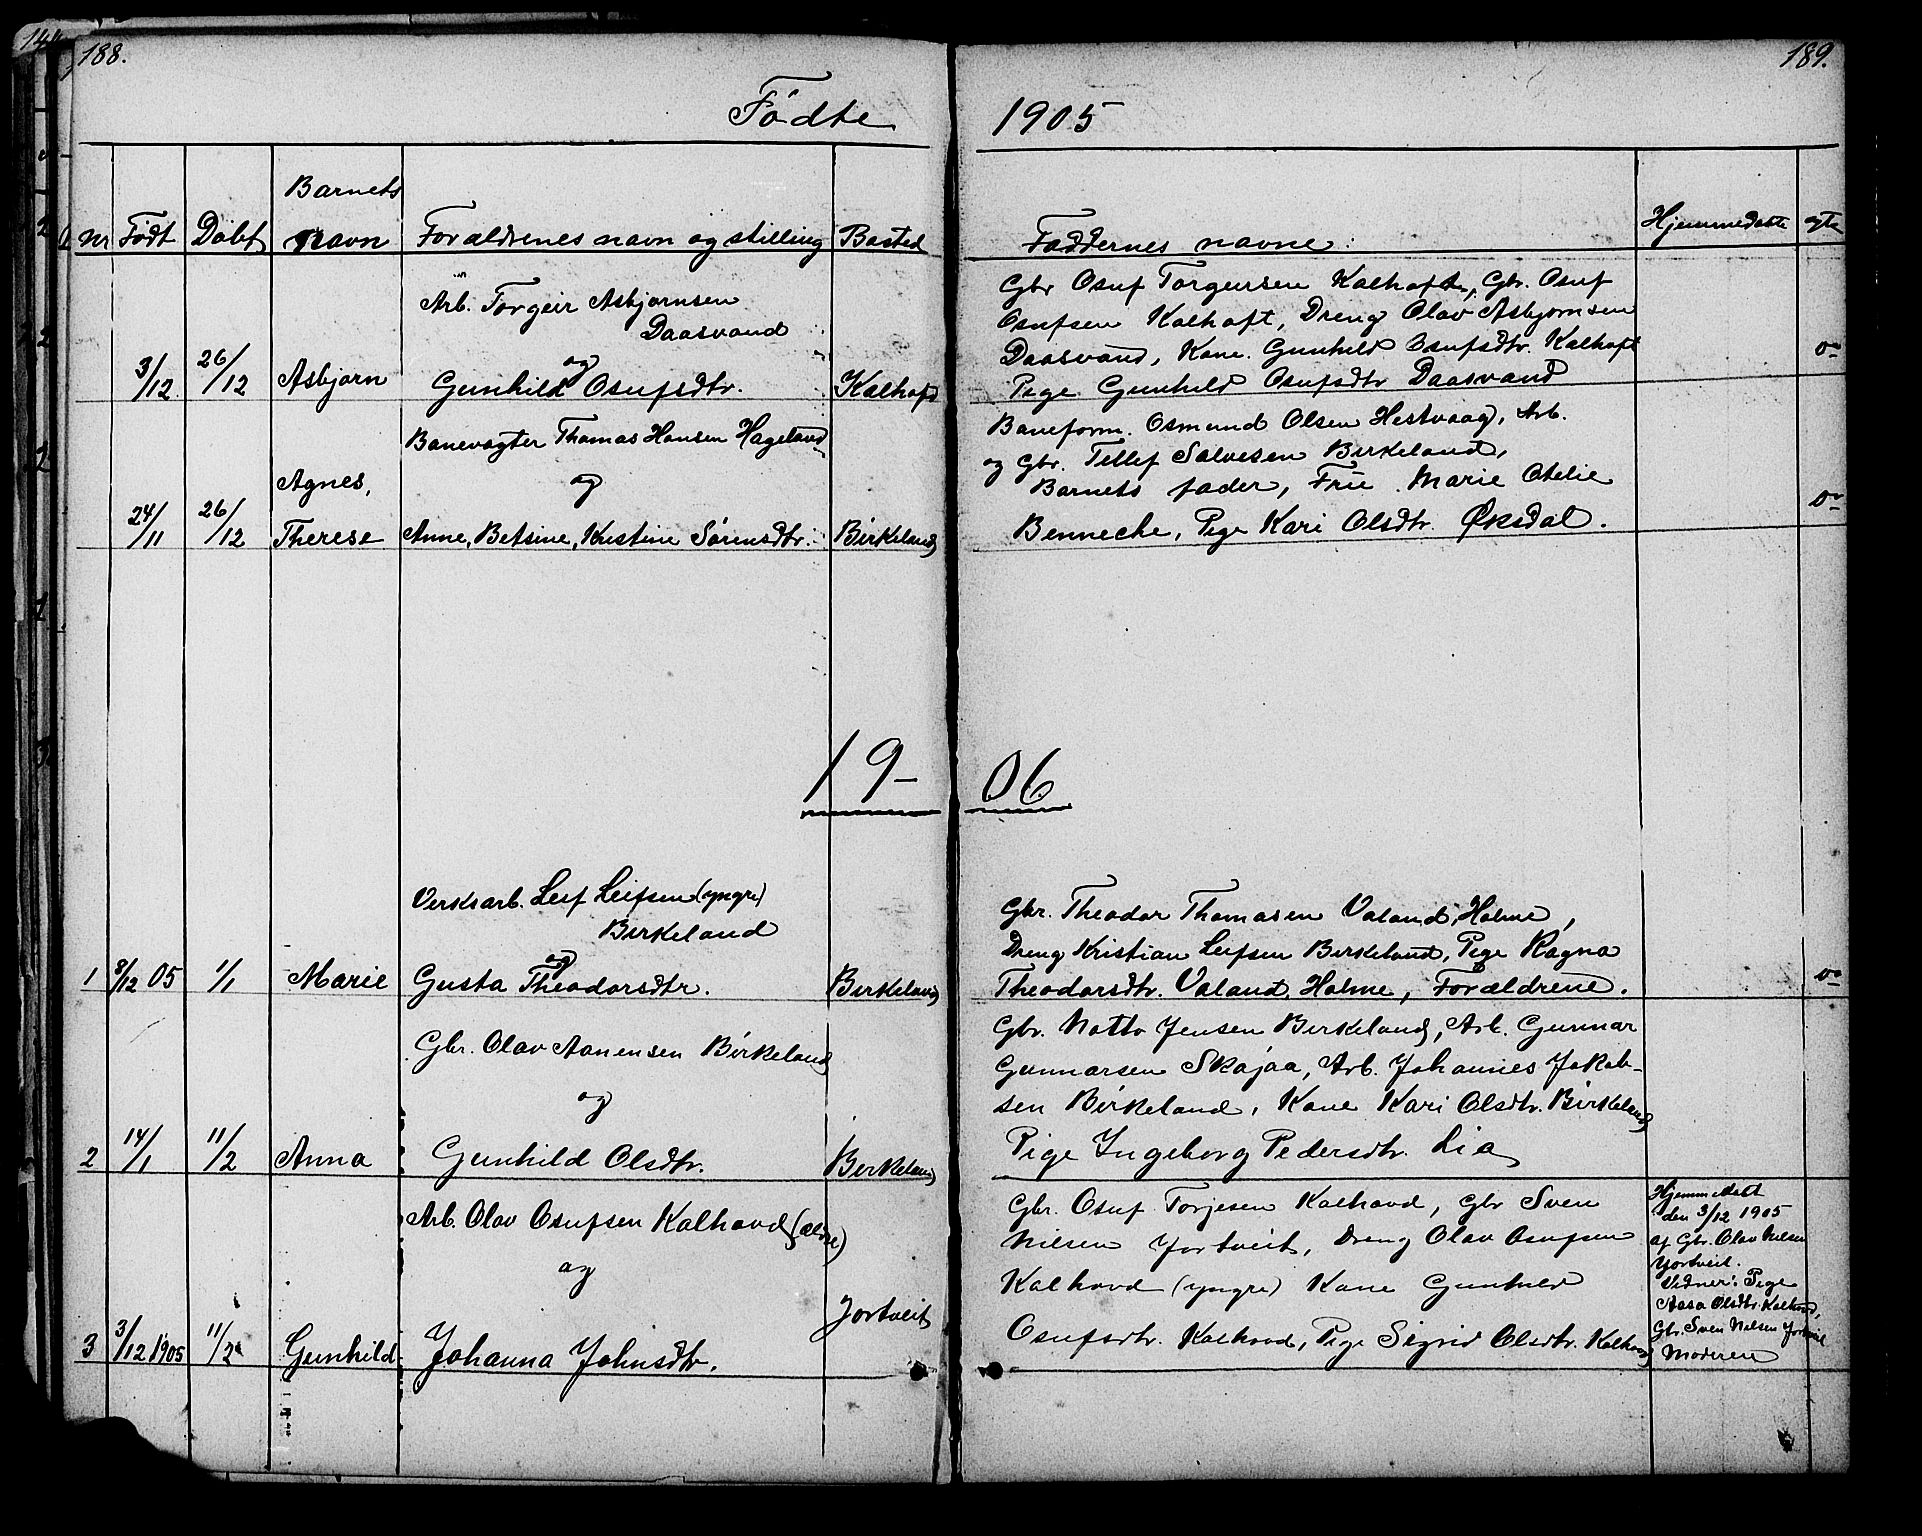 188.
189.
Fødte
1905
Nr
Født
Døbt
Barnets
navn
Forældrenes navn og stilling
Bosted
Faddernes navne:
Hjemmedøbte
3/12
26/12
Asbjørn
Arb. Torgeir Asbjørnsen
Daasvand
og
Gunhild Osufsdtr.
Kalhoft
Gbr Osuf Torgeirsen Kalhoft, Gbr. Osuf
Osufsen Kalhoft, Dreng Olav Asbjørnsen
Daasvand, Kone Gunhild Osufsdtr. Kalhoft
Pige Gunhild Osufsdtr Daasvand
24/11
26/12
Agnes,
Therese
Banevogter Thomas Hansen Hageland
og
Anne, Betsine, Kristine Sørensdtr.
Birkeland
Baneform. Osmund Olsen Hestvaag, Arb.
og Gbr. Tellef Salvesen Birkeland,
Barnets fader, Frue Marie Otelie
Bennecke, Pige Kari Olsdtr. Øksdal.
19-06
1
8/12 05
1/1
Marie
Verksarb. Leif Leifsen (yngre)
Birkeland
og
Gusta Theodorsdtr.
Birkeland
Gbr. Theodor Thomasen Valand, Holme,
Dreng Kristian Leifsen Birkeland, Pige Ragna
Theodorsdtr. Valand, Holme, Forældrene.
2
14/1
11/2
Anna
Gbr. Olav Aanensen Birkeland
og
Gunhild Olsdtr.
Birkeland
Gbr. Notto Jensen Birkeland, Arb. Gunnar
Gunnarsen Skajaa, Arb. Johannes Jakob-
sen Birkeland, Kone Kari Olsdtr. Birkeland
Pige Ingeborg Pedersdtr. Lia
3
3/12 1905
11/2
Gunhild
Arb. Olav Osufsen Kalhovd (ældre)
og
Johanna Johnsdtr.
Jortveit
Gbr. Osuf Torjesen Kalhovd, Gbr Sven
Nilsen Jortveit, Dreng Olav Osufsen
Kalhovd (yngre) Kone Gunhild
Osufsdtr. Kalhovd, Pige Sigrid Olsdtr. Kalhovd
Hjemmedøbt
den 3/12 1905
af Gbr. Olav Nilsen
Jortveit.
Vidner: Pige
Aasa Olsdtr. Kalhovd,
Gbr. Sven Nilsen Jortveit
Moderen